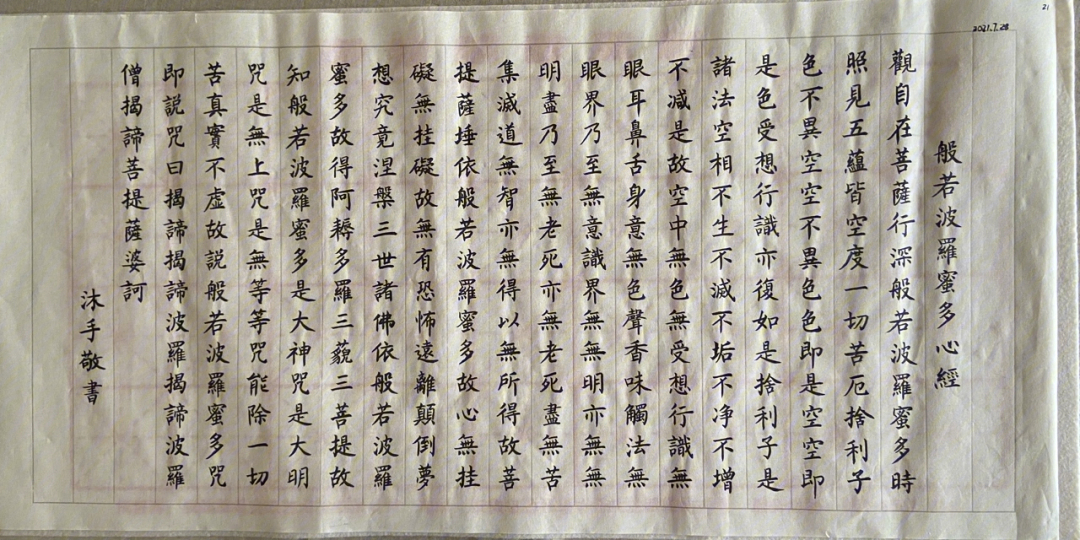 21
2021.7.28
般若波羅蜜多心經
觀自在菩薩行深般若波羅蜜多時
照見五蘊皆空度一切苦厄捨利子
色不異空空不異色色即是空空即
是色受想行識亦復如是捨利子是
諸法空相不生不滅不垢不净不增
不减是故空中無色無受想行識無
眼耳鼻舌身意無色聲香味觸法無
眼界乃至無意識界無無明亦無無
明盡乃至無老死亦無老死盡無苦
集滅道無智亦無得以無所得故菩
提薩埵依般若波羅蜜多故心無挂
礙無挂礙故無有恐怖遠離顛倒夢
想究竟涅槃三世諸佛依般若波羅
蜜多故得阿耨多羅三藐三菩提故
知般若波羅蜜多是大神咒是大明
咒是無上咒是無等等咒能除一切
苦真實不虛故説般若波羅蜜多咒
即説咒曰揭諦揭諦波羅揭諦波羅
僧揭諦菩提薩婆訶
沐手敬書